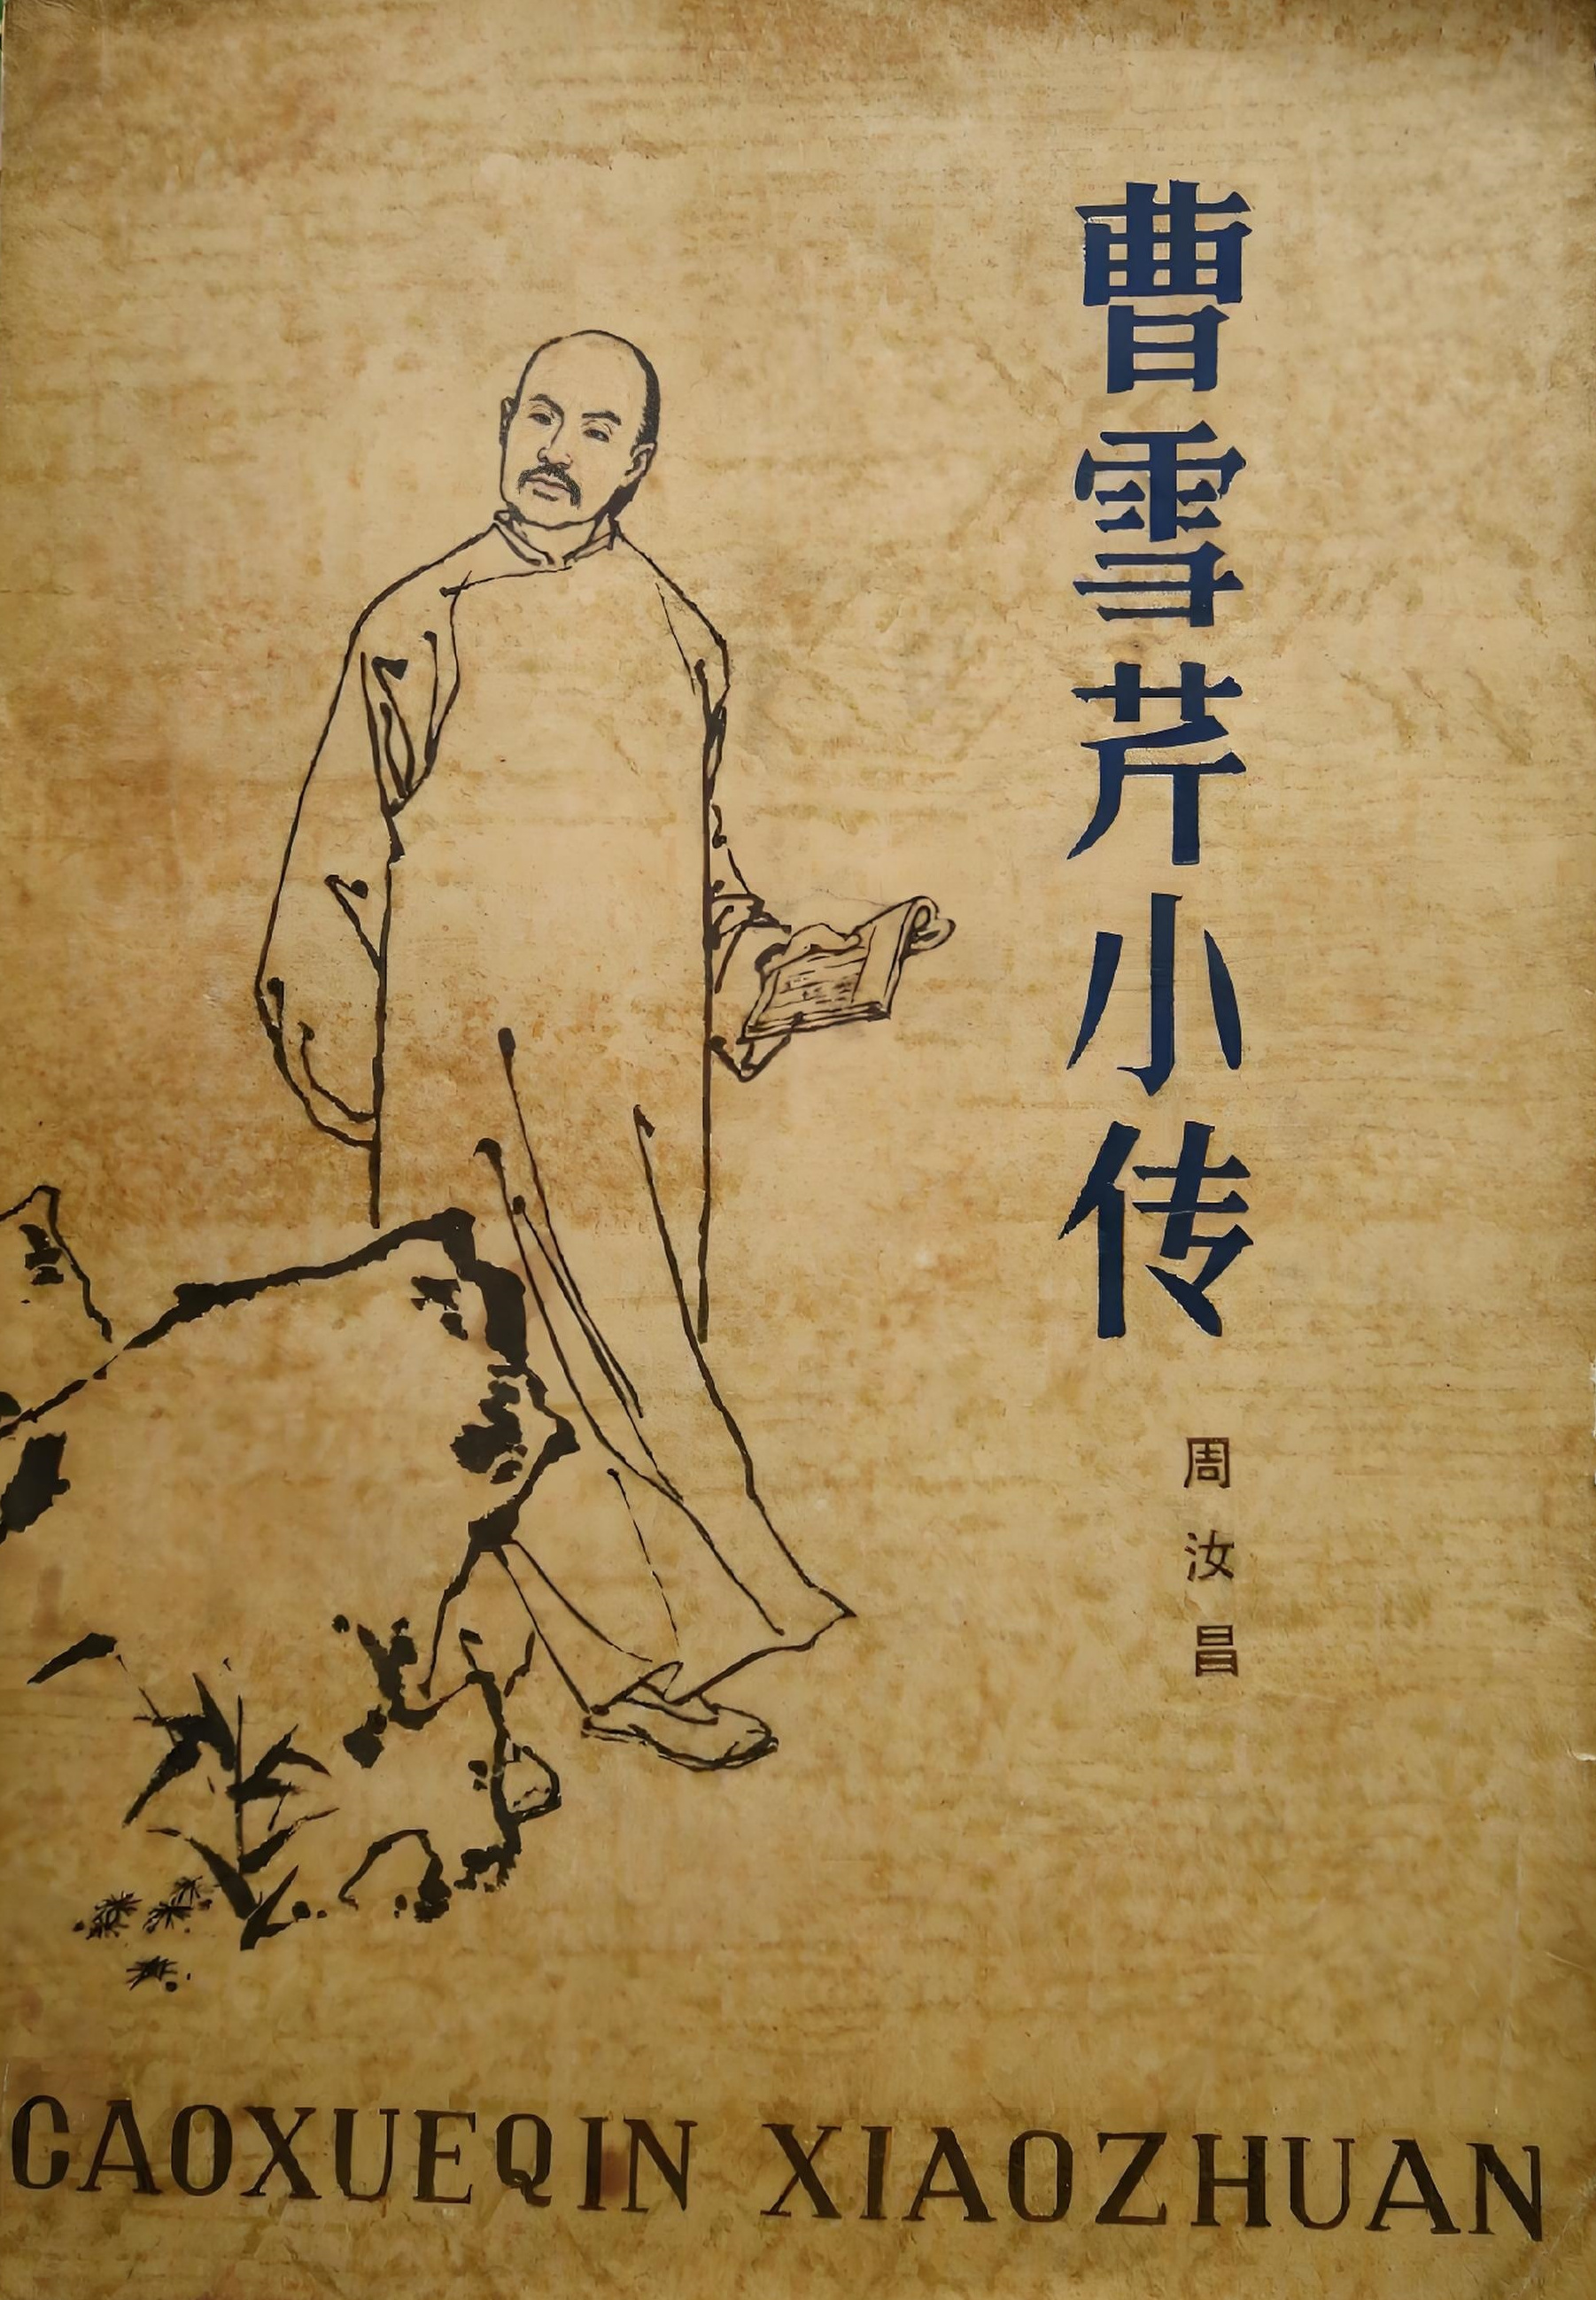 曹雪芹小传
周汝昌
CAOXUEQIN XIAOZHUAN